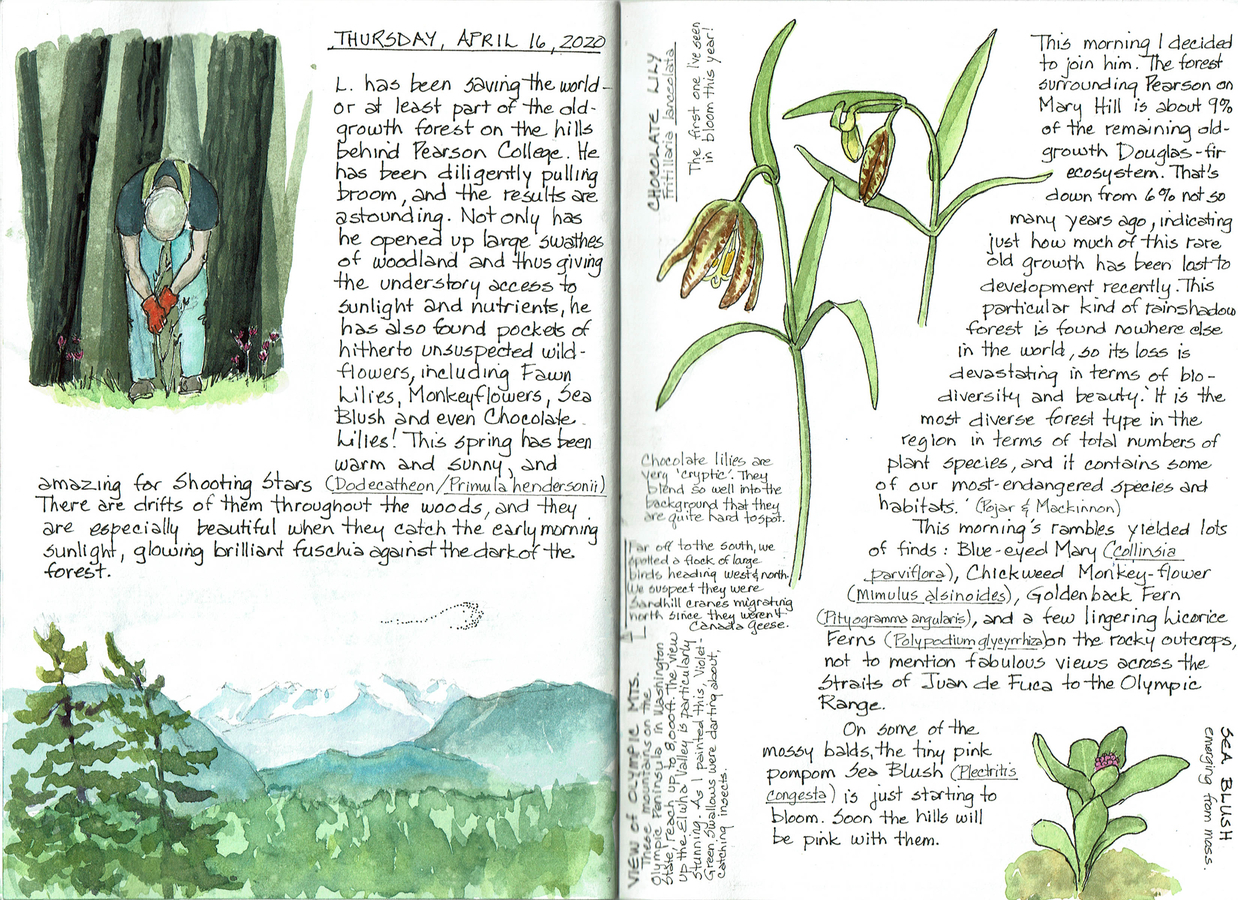 THURSDAY, APRIL 16, 2020
L. has been saving the world -
or at least part of the old-
growth forest on the hills
behind Pearson College. He
has been diligently pulling
broom, and the results are
astounding. Not only has
he opened up large swathes
of woodland and thus giving
the understory access to
sunlight and nutrients, he
has also found pockets of
hitherto unsuspected wild-
flowers, including Fawn
Lilies, Monkeyflowers, Sea
Blush and even Chocolate
Lilies! This spring has been
warm and sunny, and
amazing for Shooting Stars (Dodecatheon/Primula hendersonii)
There are drifts of them throughout the woods, and they
are especially beautiful when they catch the early morning
sunlight, glowing brilliant fuschia against the dark of the
forest.
CHOCOLATE LILY
Fritillaria lanceolata
The first one I've seen
in bloom this year!
Chocolate lilies are
very 'cryptic'. They
blend so well into the
background that they
are quite hard to spot.
Far off to the south, we
spotted a flock of large
birds heading west & north.
We suspect they were
Sandhill cranes migrating
north since they weren't
Canada Geese.
VIEW OF OLYMPIC MTS.
These mountains on the
Olympic Peninsula in Washington
State, reach up to 8,000 ft. The view
up the Elwha Valley is particularly
stunning. As I painted this, Violet-
Green Swallows were darting about,
catching insects.
This morning I decided
to join him. The forest
surrounding Pearson on
Mary Hill is about 9%
of the remaining old-
growth Douglas-fir
ecosystem. That's
down from 6% not so
many years ago, indicating
just how much of this rare
old growth has been lost to
development recently. This
particular kind of rainshadow
forest is found nowhere else
in the world, so its loss is
devastating in terms of bio-
diversity and beauty. 'It is the
most diverse forest type in the
region in terms of total numbers of
plant species, and it contains some
of our most-endangered species and
habitats.' (Pojar & Mackinnon)
This morning's rambles yielded lots
of finds: Blue-eyed Mary (Collinsia
parviflora), Chickweed Monkey-flower
(Mimulus alsinoides), Goldenback Fern
(Pityogramma angularis), and a few lingering Licorice
Ferns (Polypodium glycyrrhiza) on the rocky outcrops,
not to mention fabulous views across the
Straits of Juan de Fuca to the Olympic
Range.
On some of the
mossy balds, the tiny pink
pompom Sea Blush (Plectritis
congesta) is just starting to
bloom. Soon the hills will
be pink with them.
SEA BLUSH
emerging from moss.